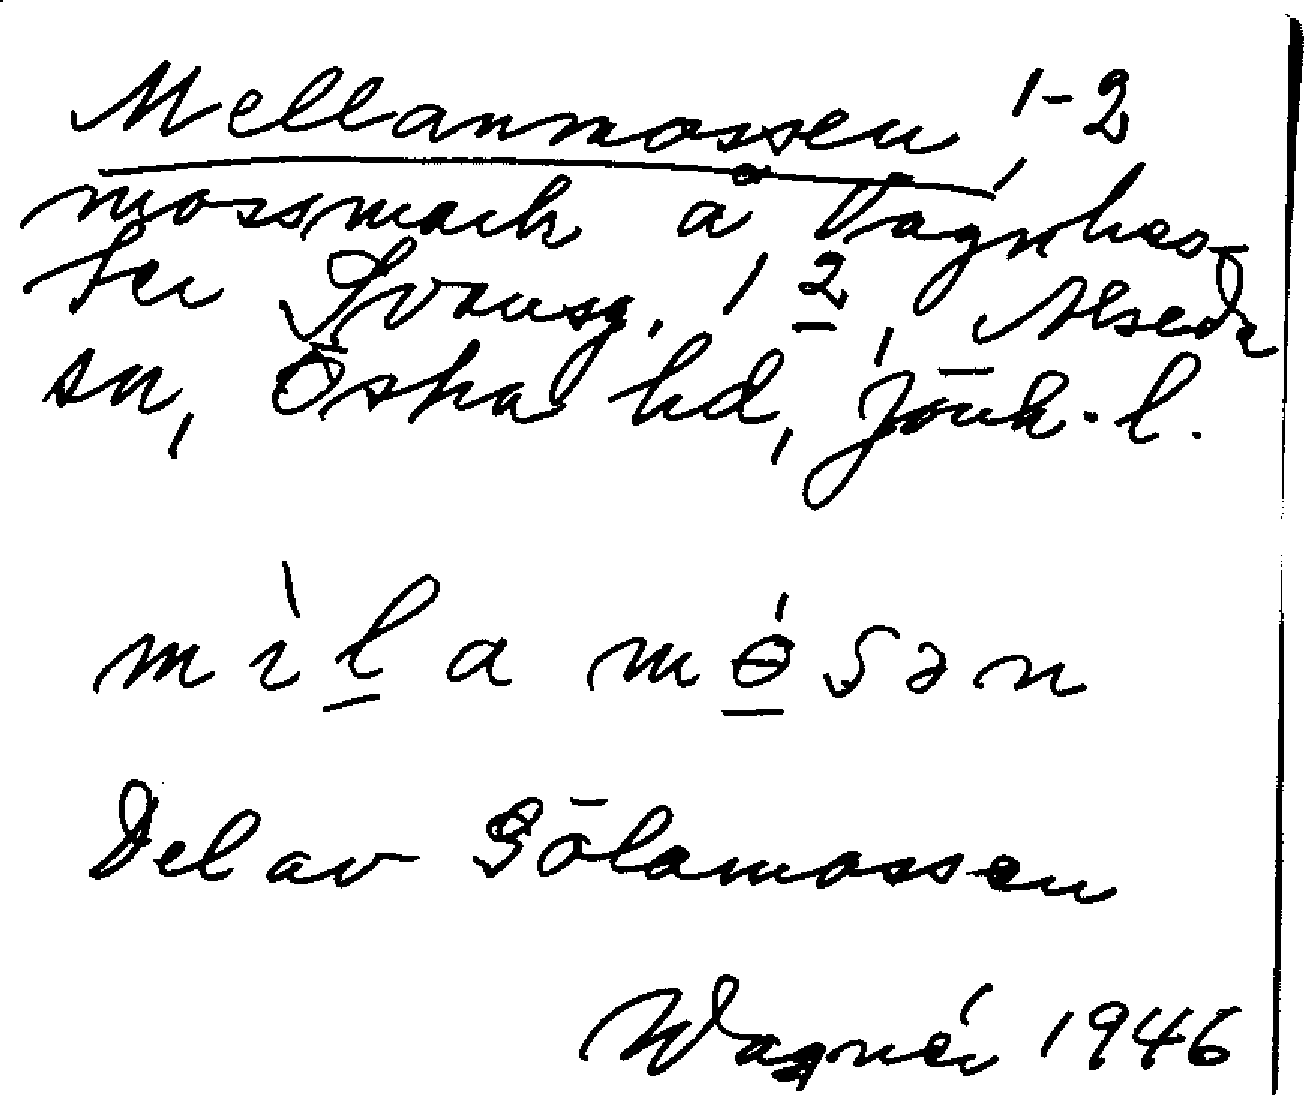 Mellanmossen, 1-2
mossmark å Vagnhes-
ter Svansg. 1 2, Alseda
sn, Östra hd, Jönk. l.
mìlamósən
Del av Gölamossen
Wagnér 1946